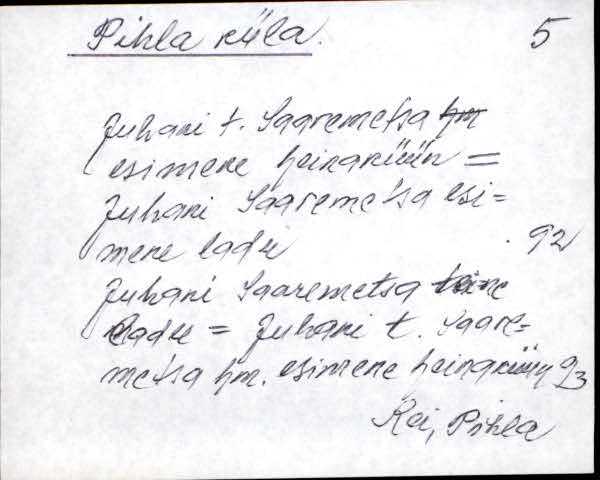 Pihla küla. 5
Juhani t. Saaremetsa hm
esimene heinaküün =
Juhani Saaremetsa esi-
mene ladu 92
Juhani Saaremetsa teine
ladu = Juhani t. Saare-
metsa hm. esimene heinaküün 93
Käi, Pihla